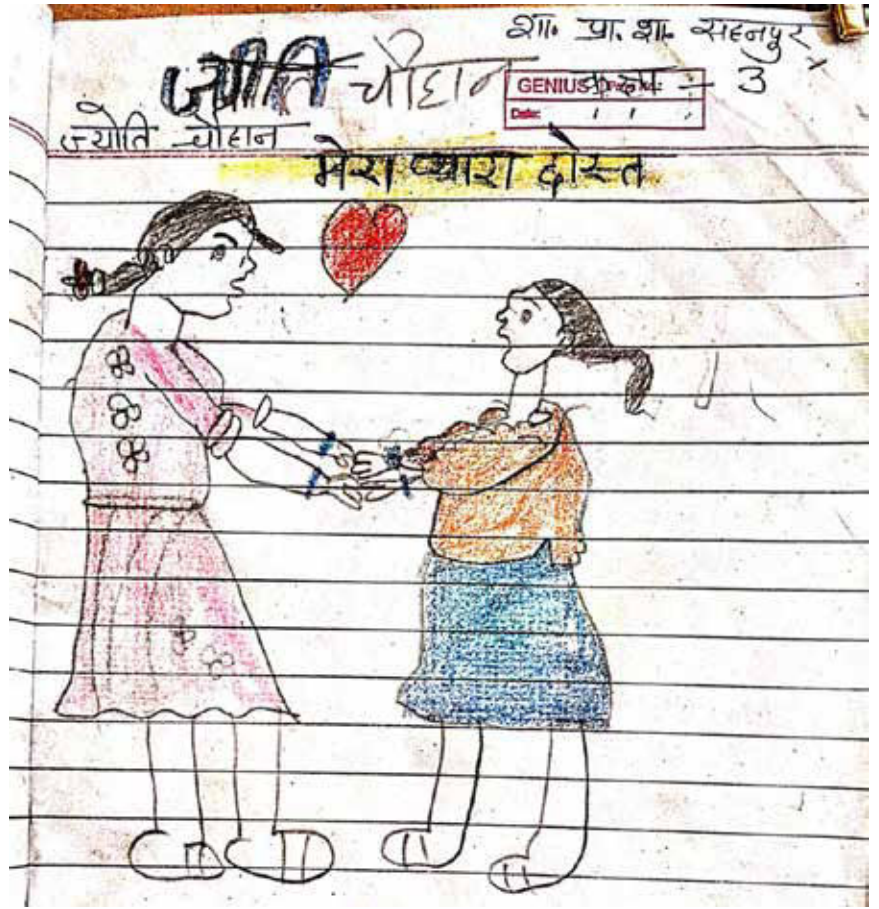 शा. प्रा. शा. सहनपुर
ज्योति चौहान
GENIUS कक्षा - 3
Date: / /
ज्योति चौहान
मेरा प्यारा दोस्त